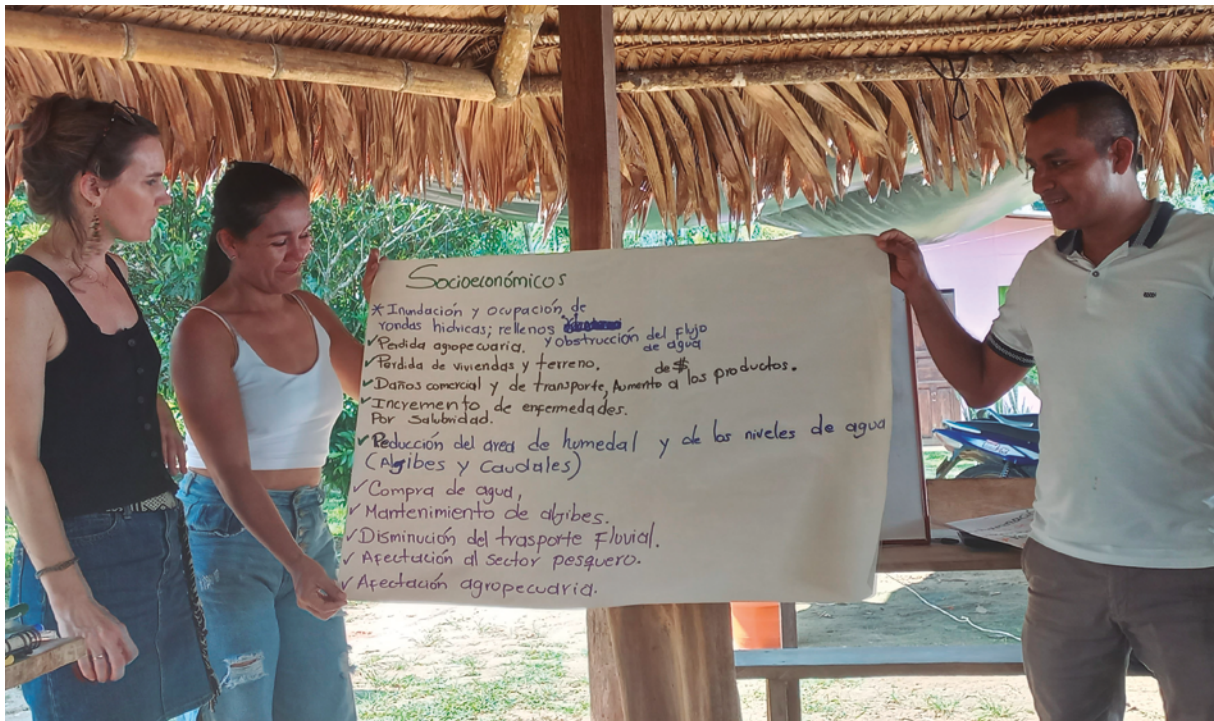 Socioeconómicos
* Inundación y ocupación de
rondas hidricas; rellenos
y obstrucción del flujo
de agua
✓ Perdida agropecuaria.
✓ Pérdida de viviendas y terreno.
✓ Daños comercial y de transporte, Aumento de $ a los productos.
✓ Incremento de enfermedades.
Por salubridad.
✓ Reducción del area de humedal y de los niveles de agua
(Aljibes y caudales)
✓ Compra de agua,
✓ Mantenimiento de aljibes.
✓ Disminución del trasporte fluvial.
✓ Afectación al sector pesquero.
✓ Afectación agropecuaria.